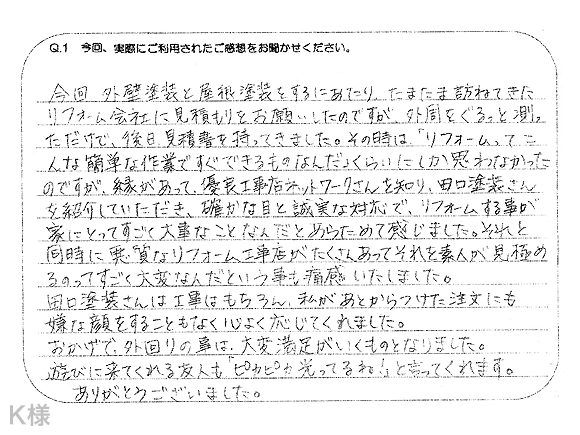 Q.1 今回、実際にご利用されたご感想をお聞かせください。
今回 外壁塗装と屋根塗装をするにあたり、たまたま訪ねてきた
リフォーム会社に見積もりをお願いしたのですが、外周をぐるっと測っ
ただけで、後日見積書を持ってきました。その時は、「リフォームってこ
んな簡単な作業ですぐできるものなんだ」くらいにしか思わなかった
のですが、縁があって、優良工事店ネットワークさんを知り、田口塗装さん
を紹介していただき、確かな目と誠実な対応で、リフォームする事が
家にとってすごく大事なことなんだとあらためて感じました。それと
同時に悪質なリフォーム工事店がたくさんあってそれを素人が見極め
るのってすごく大変なんだという事も痛感いたしました。
田口塗装さんは工事はもちろん、私があとからつけた注文にも
嫌な顔をすることもなく心よく応じてくれました。
おかげで、外回りの事は、大変満足がいくものとなりました。
遊びに来てくれる友人も「ピカピカ光ってるね!」と言ってくれます。
ありがとうございました。
K様